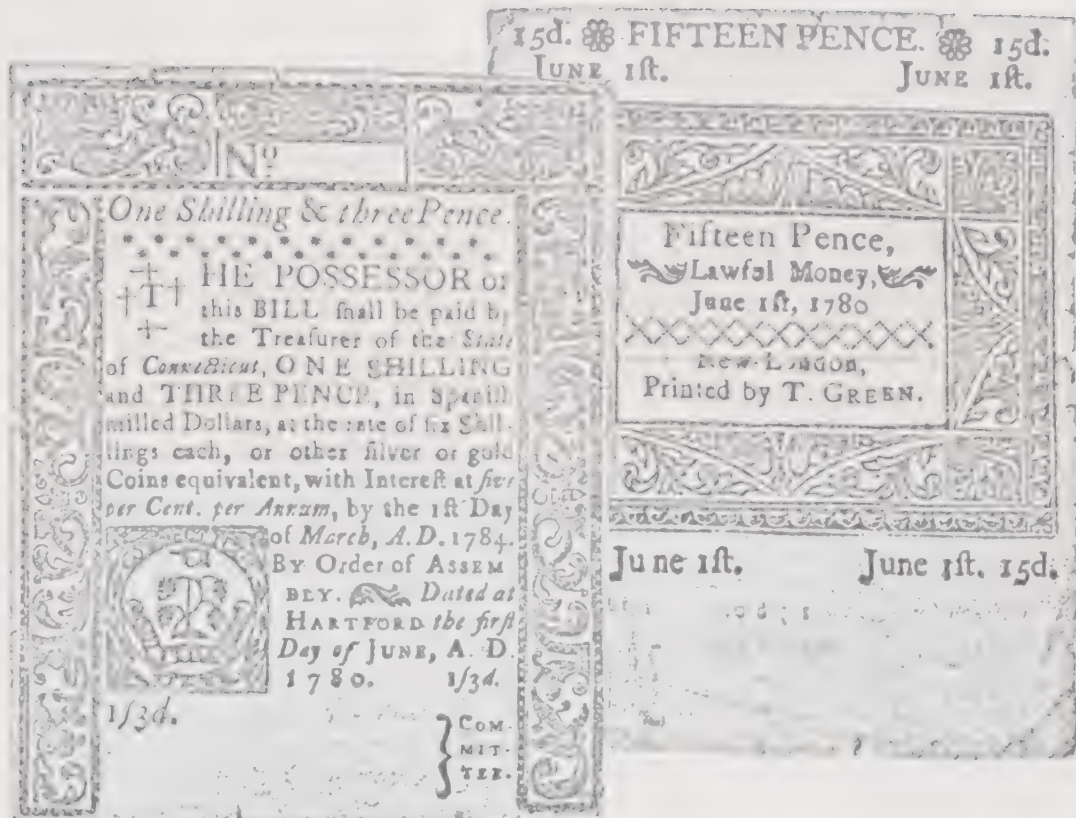 No
One Shilling & three Pence.
THE POSSESSOR of
this BILL ſhall be paid by
the Treaſurer of the State
of Connecticut, ONE SHILLING
and THREE PENCE, in Spaniſh
milled Dollars, at the rate of ſix Shil-
lings each, or other ſilver or gold
Coins equivalent, with Intereſt at five
per Cent. per Annum, by the 1ſt Day
of March, A.D. 1784.
By Order of ASSEM
BLY. Dated at
HARTFORD the firſt
Day of JUNE, A. D.
1780. 1/3d.
1/3d.
COM-
MIT-
TEE.
15d. FIFTEEN PENCE. 15d.
JUNE 1ſt. JUNE 1ſt.
Fifteen Pence,
Lawful Money,
June 1ſt, 1780
New-London,
Printed by T. GREEN.
June 1ſt. June 1ſt. 15d.